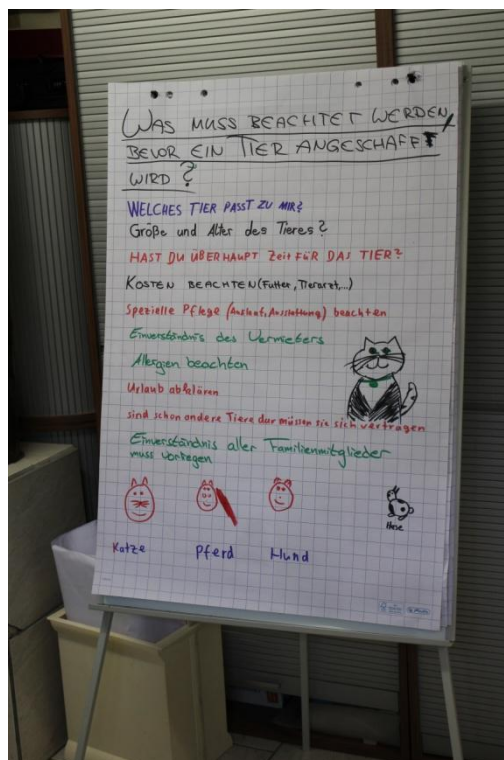 WAS MUSS BEACHTET WERDEN,
BEVOR EIN TIER ANGESCHAFFT
WIRD?
WELCHES TIER PASST ZU MIR?
Größe und Alter des Tieres?
HAST DU ÜBERHAUPT Zeit FÜR DAS TIER?
KOSTEN BEACHTEN (Futter, Tierarzt,...)
Spezielle Pflege (Auslauf, Ausstattung) beachten
Einverständnis des Vermieters
Allergien beachten
Urlaub abklären
sind schon andere Tiere da müssen sie sich vertragen
Einverständnis aller Familienmitglieder
muss vorliegen
Katze
Pferd
Hund
Hase